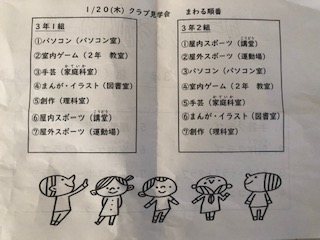 1/20(木) クラブ見学会 まわる順番
3年1組
①パソコン(パソコン室)
②室内ゲーム(2年 教室)
③手芸(家庭科室)
④まんが・イラスト(図書室)
⑤創作(理科室)
⑥屋内スポーツ(講堂)
⑦屋外スポーツ(運動場)
3年2組
①屋内スポーツ(講堂)
②屋外スポーツ(運動場)
③パソコン(パソコン室)
④室内ゲーム(2年 教室)
⑤手芸(家庭科室)
⑥まんが・イラスト(図書室)
⑦創作(理科室)